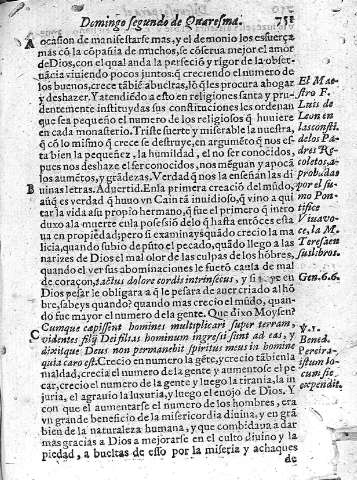 Domingo segundo de Quaresma. 751
A ocasion de manifestarse mas, y el demonio los esfuerça
mas cõ la cõpañia de muchos, se cõserua mejor el amor
de Dios, con el qual anda la perfeciõ y rigor de la obser-
uãcia viuiendo pocos juntos, q̃ creciendo el numero de
los buenos, crece tãbiẽ abueltas, lo q̃ les procura ahogar
y deshazer. Y atendiẽdo a esto en religiones santa y pru-
dentemente instituydas sus constituciones les ordenan
que sea pequeño el numero de los religiosos q̃ huuiere
en cada monasterio. Triste suerte y miserable la nuestra,
q̃ cõ lo mismo q̃ crece se destruye, en argumẽto q̃ nos es-
ta bien la pequeñez, la humildad, el no ser conocidos,
pues nos deshaze el ser conocidos, nos mẽguan y apocã
los aumẽtos, y grãdezas. Verdad q̃ nos la enseñan las di
B uinas letras. Aduertid. En la primera creaciõ del mũdo,
aũq̃ es verdad q̃ huuo vn Cain tã inuidioso, q̃ vino a qui
tar la vida a su propio hermano, q̃ fue el primero q̃ intro
duxo a la muerte en la possessiõ de lo q̃ hasta entõces esta
ua en propiedad, pero si examinays quãdo crecio la ma
licia, quando subio de pũto el pecado, quãdo llego a las
narizes de Dios el mal olor de las culpas de los hõbres,
quando el ver sus abominaciones le fuerõ causa de mal
de coraçon, tactus dolore cordis intrinsecus, y si cave en
Dios pesar le obligara a q̃ le pesara de auer criado al hõ
bre, sabeys quando? quando mas crecio el mũdo, quan-
do fue mayor el numero de la gente. Que dixo Moysen?
C Cumque cœpissent homines multiplicari super terram,
videntes filij Dei filias hominum ingressi sint ad eas, y
dixitque Deus non permanebit spiritus meus in homine
quia caro est. Crecio en numero la gẽte, y crecio tãbien la
maldad, crecia el numero de la gente y aumentose el pe
car, crecio el numero de la gente y luego la tirania, la in
juria, el agrauio la luxuria, y luego el enojo de Dios. Y
con que el aumentarse el numero de los hombres, era
vn grande beneficio de la misericordia diuina, y en grã
bien de la naturaleza humana, y que combidaua a dar
mas gracias a Dios a mejorarse en el culto diuino y la
piedad, a bueltas de esso por la miseria y achaques
de
El Mae-
stro F.
Luis de
Leon en
las consti.
de los Pa
dres Re-
coletos, a-
probadas
por el su-
mo Pon-
tifice
Viua vo-
ce, la M.
Teresa en
sus libros.
Gen. 6. 6.
V. 1.
Bened.
Pereira-
istum lo-
cum sic
expendit.